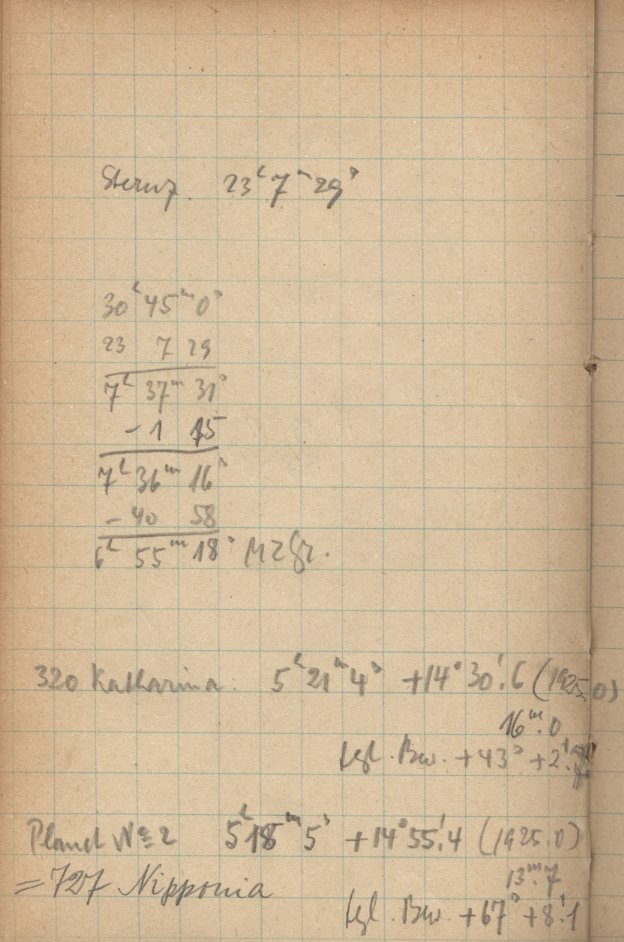 Sternz. 23ʰ 7ᵐ 29ˢ
30ʰ 45ᵐ 0ˢ
23 7 29
7ʰ 37ᵐ 31ˢ
- 1 15
7ʰ 36ᵐ 16ˢ
- 40 58
6ʰ 55ᵐ 18ˢ MZGr.
320 Katharina. 5ʰ 21ᵐ 4ˢ +14° 30'.6 (1925.0)
16ᵐ.0
tgl. Bew. +43ˢ +2'.
Planet № 2 5ʰ 18ᵐ 5ˢ +14° 55'.4 (1925.0)
= 727 Nipponia 13ᵐ.7
tgl. Bew. +67ˢ +8'.1